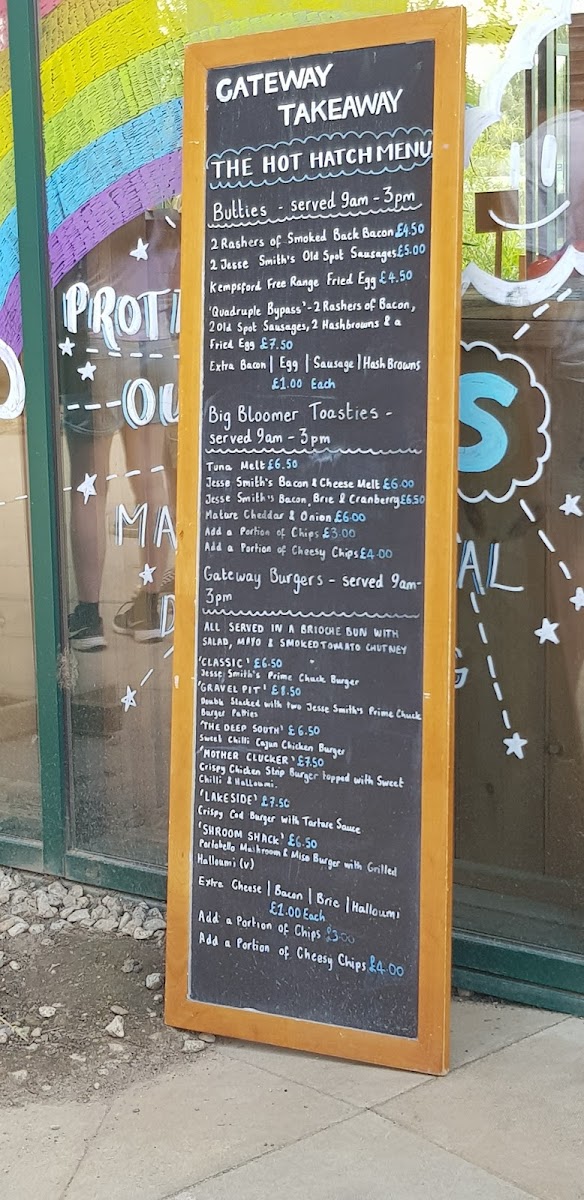 GATEWAY
TAKEAWAY
THE HOT HATCH MENU
Butties - served 9am - 3pm
2 Rashers of Smoked Back Bacon £4.50
2 Jesse Smith's Old Spot Sausages £5.00
Kempsford Free Range Fried Egg £4.50
'Quadruple Bypass' - 2 Rashers of Bacon,
2 Old Spot Sausages, 2 Hashbrowns & a
Fried Egg £7.50
Extra Bacon | Egg | Sausage | Hash Browns
£1.00 Each
Big Bloomer Toasties -
served 9am - 3pm
Tuna Melt £6.50
Jesse Smith's Bacon & Cheese Melt £6.00
Jesse Smith's Bacon, Brie & Cranberry £6.50
Mature Cheddar & Onion £6.00
Add a Portion of Chips £3.00
Add a Portion of Cheesy Chips £4.00
Gateway Burgers - served 9am-
3pm
ALL SERVED IN A BRIOCHE BUN WITH
SALAD, MAYO & SMOKED TOMATO CHUTNEY
'CLASSIC' £6.50
Jesse Smith's Prime Chuck Burger
'GRAVEL PIT' £8.50
Double Stacked with two Jesse Smith's Prime Chuck
Burger Patties
'THE DEEP SOUTH' £6.50
Sweet Chilli Cajun Chicken Burger
'MOTHER CLUCKER' £7.50
Crispy Chicken Strip Burger topped with Sweet
Chilli & Halloumi.
'LAKESIDE' £7.50
Crispy Cod Burger with Tartare Sauce
'SHROOM SHACK' £6.50
Portobello Mushroom & Miso Burger with Grilled
Halloumi (v)
Extra Cheese | Bacon | Brie | Halloumi
£1.00 Each
Add a Portion of Chips £3.00
Add a Portion of Cheesy Chips £4.00
PROT
OU
S
MA
AL
D
G